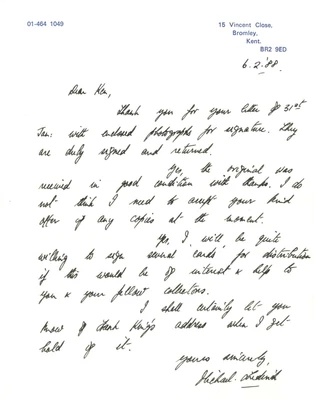 01-464 1049
15 Vincent Close,
Bromley,
Kent.
BR2 9ED
6.2.'88.
Dear Ken,
Thank you for your letter of 31st
Jan: with enclosed photographs for signature. They
are duly signed and returned.
Yes, the original was
received in good condition with thanks. I do
not think I need to accept your kind
offer of any copies at the moment.
Yes, I will be quite
willing to sign several cards for distribution
if this would be of interest & help to
you & your fellow collectors.
I shall certainly let you
know of Frank King's address when I get
hold of it.
Yours sincerely,
Michael